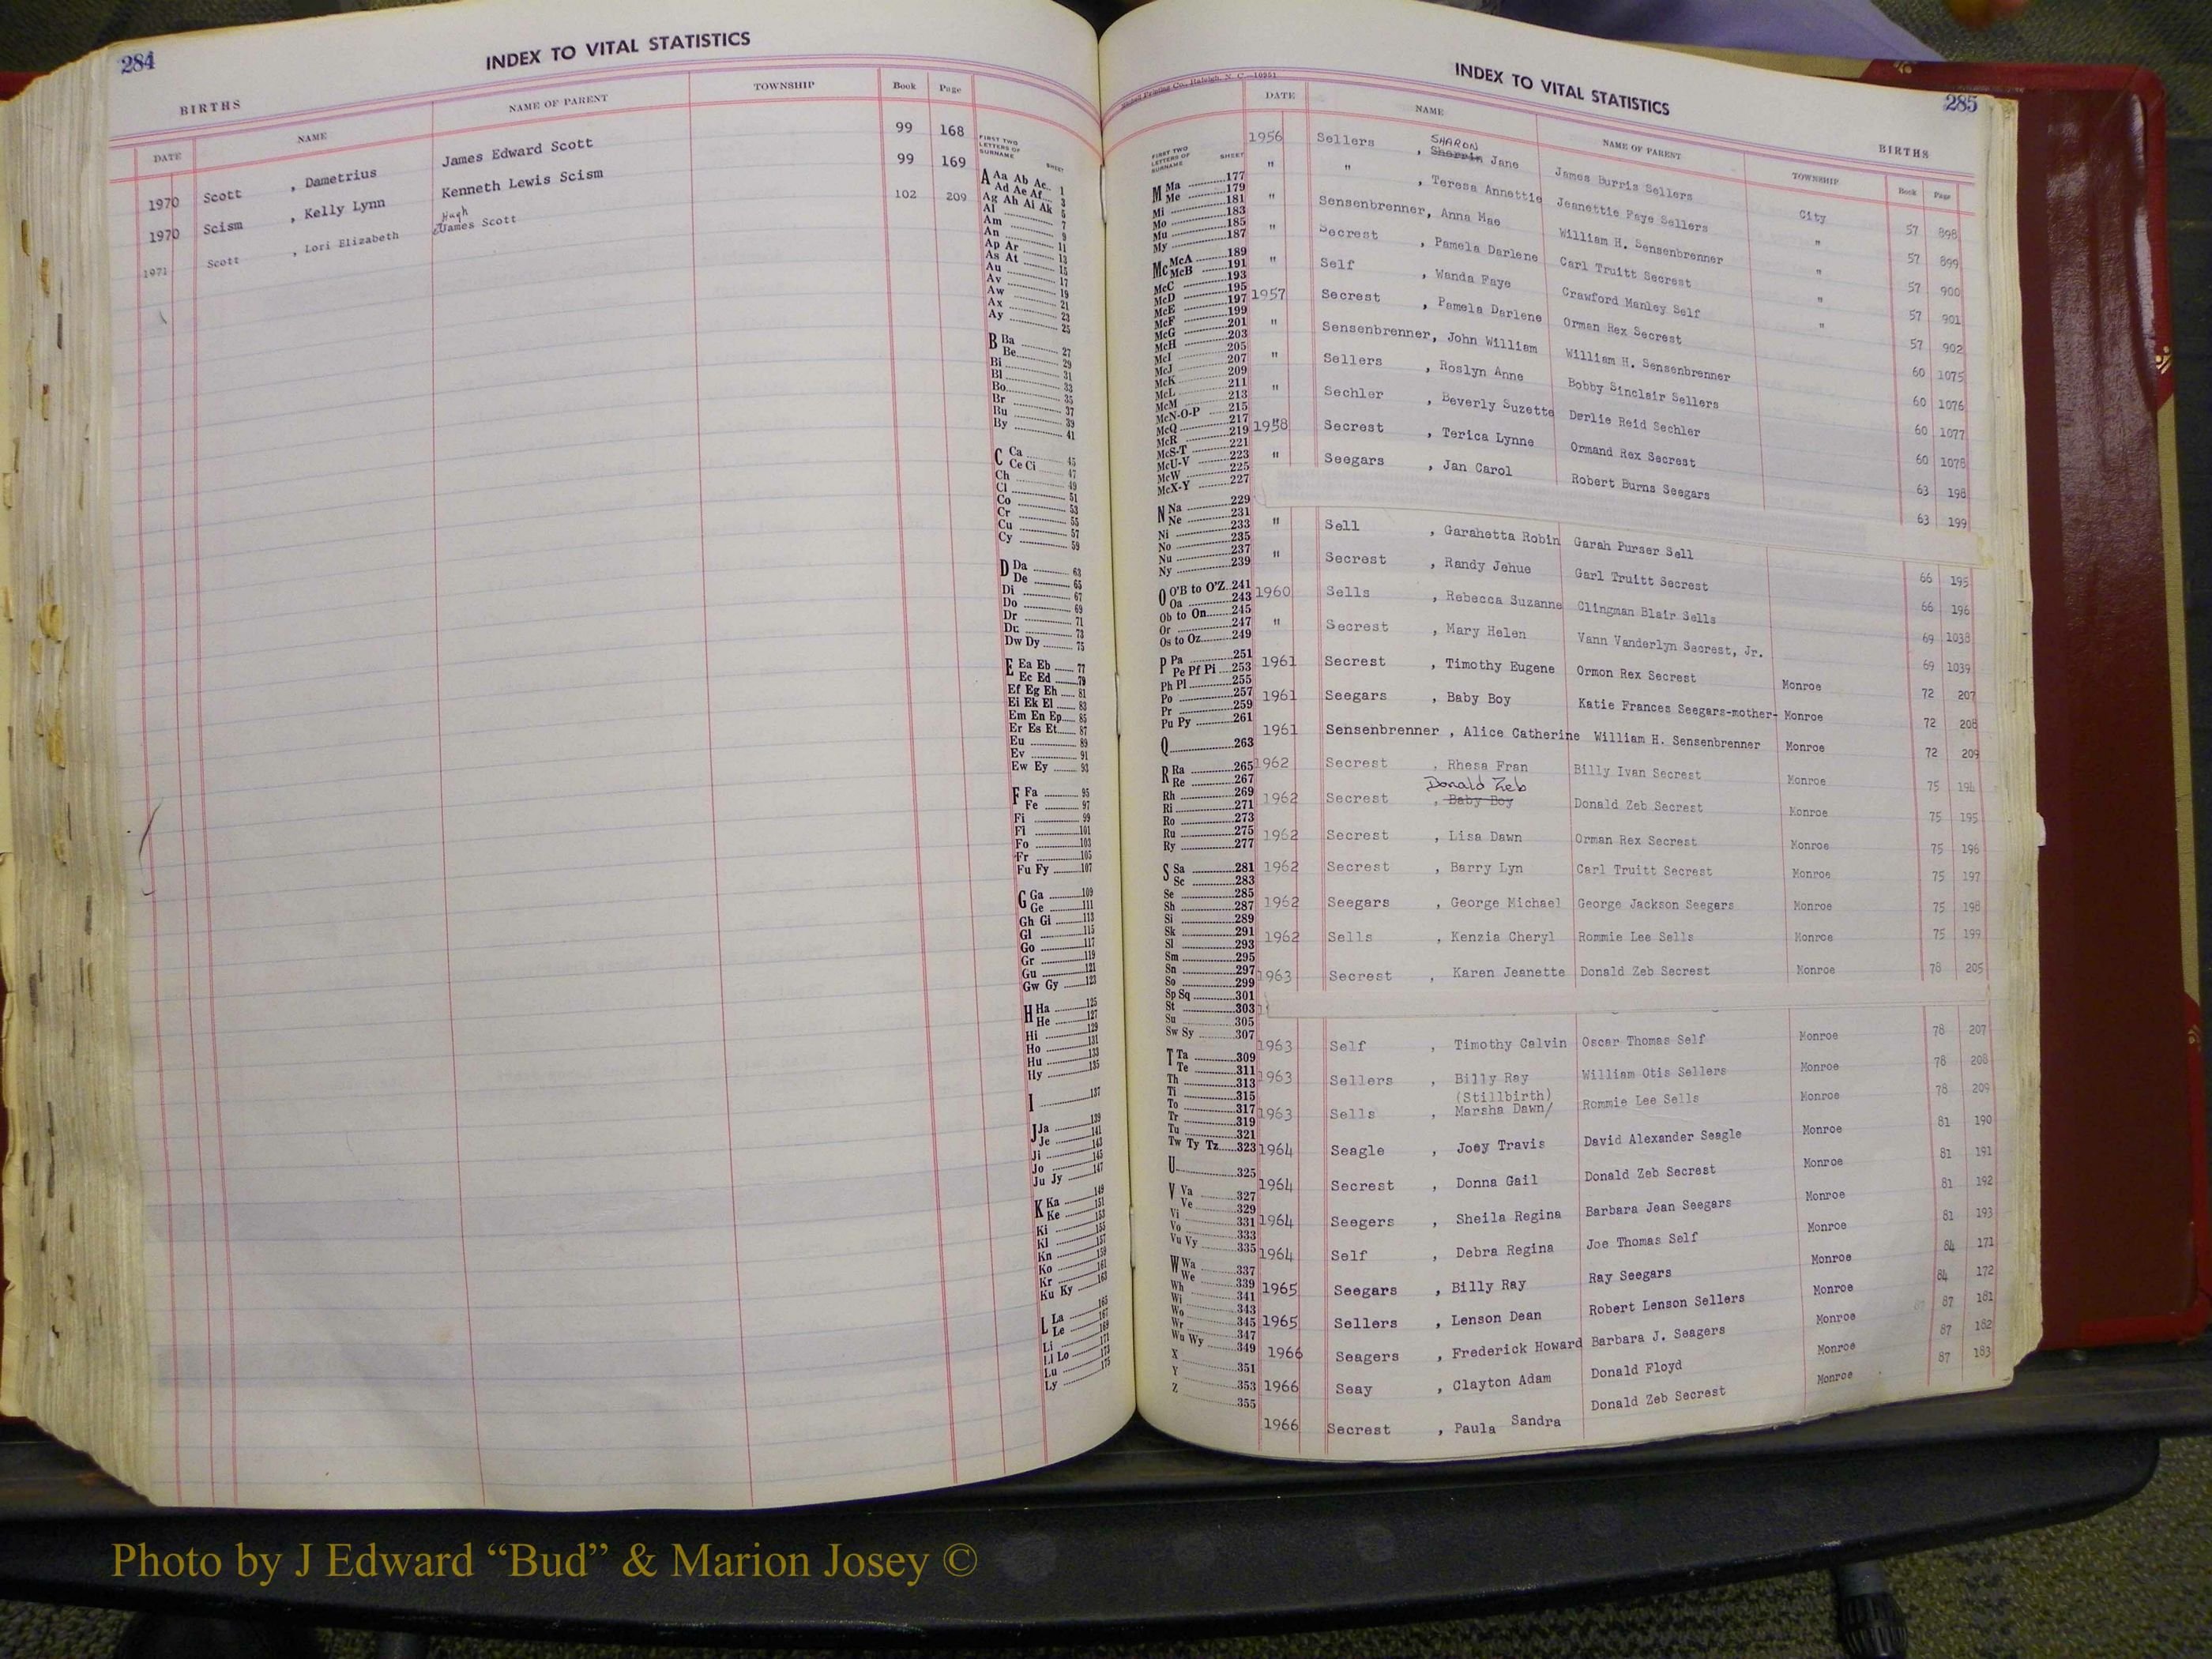 284
INDEX TO VITAL STATISTICS
BIRTHS
DATE NAME NAME OF PARENT TOWNSHIP Book Page
1970 Scott , Dametrius James Edward Scott 99 168
1970 Scism , Kelly Lynn Kenneth Lewis Scism 99 169
Hugh
1971 Scott , Lori Elizabeth James Scott 102 209
FIRST TWO LETTERS OF SURNAME SHEET
A Aa Ab Ac 1
Ad Ae Af 3
Ag Ah Ai Ak 5
Al 7
Am 9
An 11
Ap Ar 13
As At 15
Au 17
Av 19
Aw 21
Ax 23
Ay 25
B Ba 27
Be 29
Bi 31
Bl 33
Bo 35
Br 37
Bu 39
By 41
C Ca 45
Ce Ci 47
Ch 49
Cl 51
Co 53
Cr 55
Cu 57
Cy 59
D Da 63
De 65
Di 67
Do 69
Dr 71
Du 73
Dw Dy 75
E Ea Eb 77
Ec Ed 79
Ef Eg Eh 81
Ei Ek El 83
Em En Ep 85
Er Es Et 87
Eu 89
Ev 91
Ew Ey 93
F Fa 95
Fe 97
Fi 99
Fl 101
Fo 103
Fr 105
Fu Fy 107
G Ga 109
Ge 111
Gh Gi 113
Gl 115
Go 117
Gr 119
Gu 121
Gw Gy 123
H Ha 125
He 127
Hi 129
Ho 131
Hu 133
Hy 135
I 137
J Ja 139
Je 141
Ji 143
Jo 145
Ju Jy 147
K Ka 149
Ke 151
Ki 153
Kl 155
Kn 157
Ko 159
Kr 161
Ku Ky 163
L La 165
Le 167
Li 169
Ll Lo 171
Lu 173
Ly 175
Printing Co., Raleigh, N. C.—10951
INDEX TO VITAL STATISTICS
285
BIRTHS
FIRST TWO LETTERS OF SURNAME SHEET
M Ma 177
Me 179
Mi 181
Mo 183
Mu 185
My 187
Mc McA 189
McB 191
McC 193
McD 195
McE 197
McF 199
McG 201
McH 203
McI 205
McJ 207
McK 209
McL 211
McM 213
McN-O-P 215
McQ 217
McR 219
McS-T 221
McU-V 223
McW 225
McX-Y 227
N Na 229
Ne 231
Ni 233
No 235
Nu 237
Ny 239
O O'B to O'Z 241
Oa 243
Ob to On 245
Or 247
Os to Oz 249
P Pa 251
Pe Pf Pi 253
Ph Pl 255
Po 257
Pr 259
Pu Py 261
Q 263
R Ra 265
Re 267
Rh 269
Ri 271
Ro 273
Ru 275
Ry 277
S Sa 281
Sc 283
Se 285
Sh 287
Si 289
Sk 291
Sl 293
Sm 295
Sn 297
So 299
Sp Sq 301
St 303
Su 305
Sw Sy 307
T Ta 309
Te 311
Th 313
Ti 315
To 317
Tr 319
Tu 321
Tw Ty Tz 323
U 325
V Va 327
Ve 329
Vi 331
Vo 333
Vu Vy 335
W Wa 337
We 339
Wh 341
Wi 343
Wo 345
Wr 347
Wu Wy 349
X 351
Y 353
Z 355
DATE NAME NAME OF PARENT TOWNSHIP Book Page
SHARON
1956 Sellers , Sherrin Jane James Burris Sellers City 57 898
" " , Teresa Annettie Jeanettie Faye Sellers " 57 899
" Sensenbrenner, Anna Mae William H. Sensenbrenner " 57 900
" Secrest , Pamela Darlene Carl Truitt Secrest " 57 901
" Self , Wanda Faye Crawford Manley Self " 57 902
1957 Secrest , Pamela Darlene Orman Rex Secrest 60 1075
" Sensenbrenner, John William William H. Sensenbrenner 60 1076
" Sellers , Roslyn Anne Bobby Sinclair Sellers 60 1077
" Sechler , Beverly Suzette Derlie Reid Sechler 60 1078
1958 Secrest , Terica Lynne Ormand Rex Secrest 63 198
" Seegars , Jan Carol Robert Burns Seegars 63 199
" Sell , Garahetta Robin Garah Purser Sell 66 195
" Secrest , Randy Jehue Carl Truitt Secrest 66 196
1960 Sells , Rebecca Suzanne Clingman Blair Sells 69 1038
" Secrest , Mary Helen Vann Vanderlyn Secrest, Jr. 69 1039
1961 Secrest , Timothy Eugene Ormon Rex Secrest Monroe 72 207
1961 Seegars , Baby Boy Katie Frances Seegars-mother- Monroe 72 208
1961 Sensenbrenner , Alice Catherine William H. Sensenbrenner Monroe 72 209
1962 Secrest , Rhesa Fran Billy Ivan Secrest Monroe 75 194
Donald Zeb
1962 Secrest , Baby Boy Donald Zeb Secrest Monroe 75 195
1962 Secrest , Lisa Dawn Orman Rex Secrest Monroe 75 196
1962 Secrest , Barry Lyn Carl Truitt Secrest Monroe 75 197
1962 Seegars , George Michael George Jackson Seegars Monroe 75 198
1962 Sells , Kenzia Cheryl Rommie Lee Sells Monroe 75 199
1963 Secrest , Karen Jeanette Donald Zeb Secrest Monroe 78 205
1963 Self , Timothy Calvin Oscar Thomas Self Monroe 78 207
1963 Sellers , Billy Ray William Otis Sellers Monroe 78 208
(Stillbirth)
1963 Sells , Marsha Dawn/ Rommie Lee Sells Monroe 78 209
1964 Seagle , Joey Travis David Alexander Seagle Monroe 81 190
1964 Secrest , Donna Gail Donald Zeb Secrest Monroe 81 191
1964 Seegers , Sheila Regina Barbara Jean Seegars Monroe 81 192
1964 Self , Debra Regina Joe Thomas Self Monroe 81 193
1965 Seegars , Billy Ray Ray Seegars Monroe 84 171
1965 Sellers , Lenson Dean Robert Lenson Sellers Monroe 84 172
1966 Seagers , Frederick Howard Barbara J. Seagers Monroe 87 181
1966 Seay , Clayton Adam Donald Floyd Monroe 87 182
1966 Secrest , Paula Sandra Donald Zeb Secrest Monroe 87 183
Photo by J Edward “Bud” & Marion Josey ©